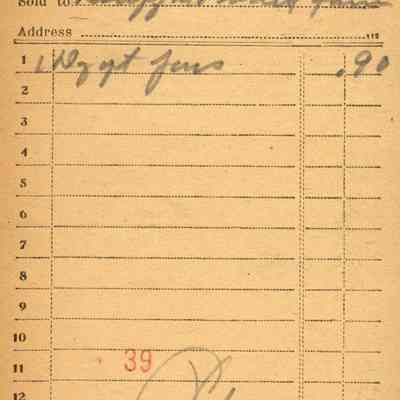 Sold to
Address
1 1 Dz qt jars .90
2
3
4
5
6
7
8
9
10
39
11
12